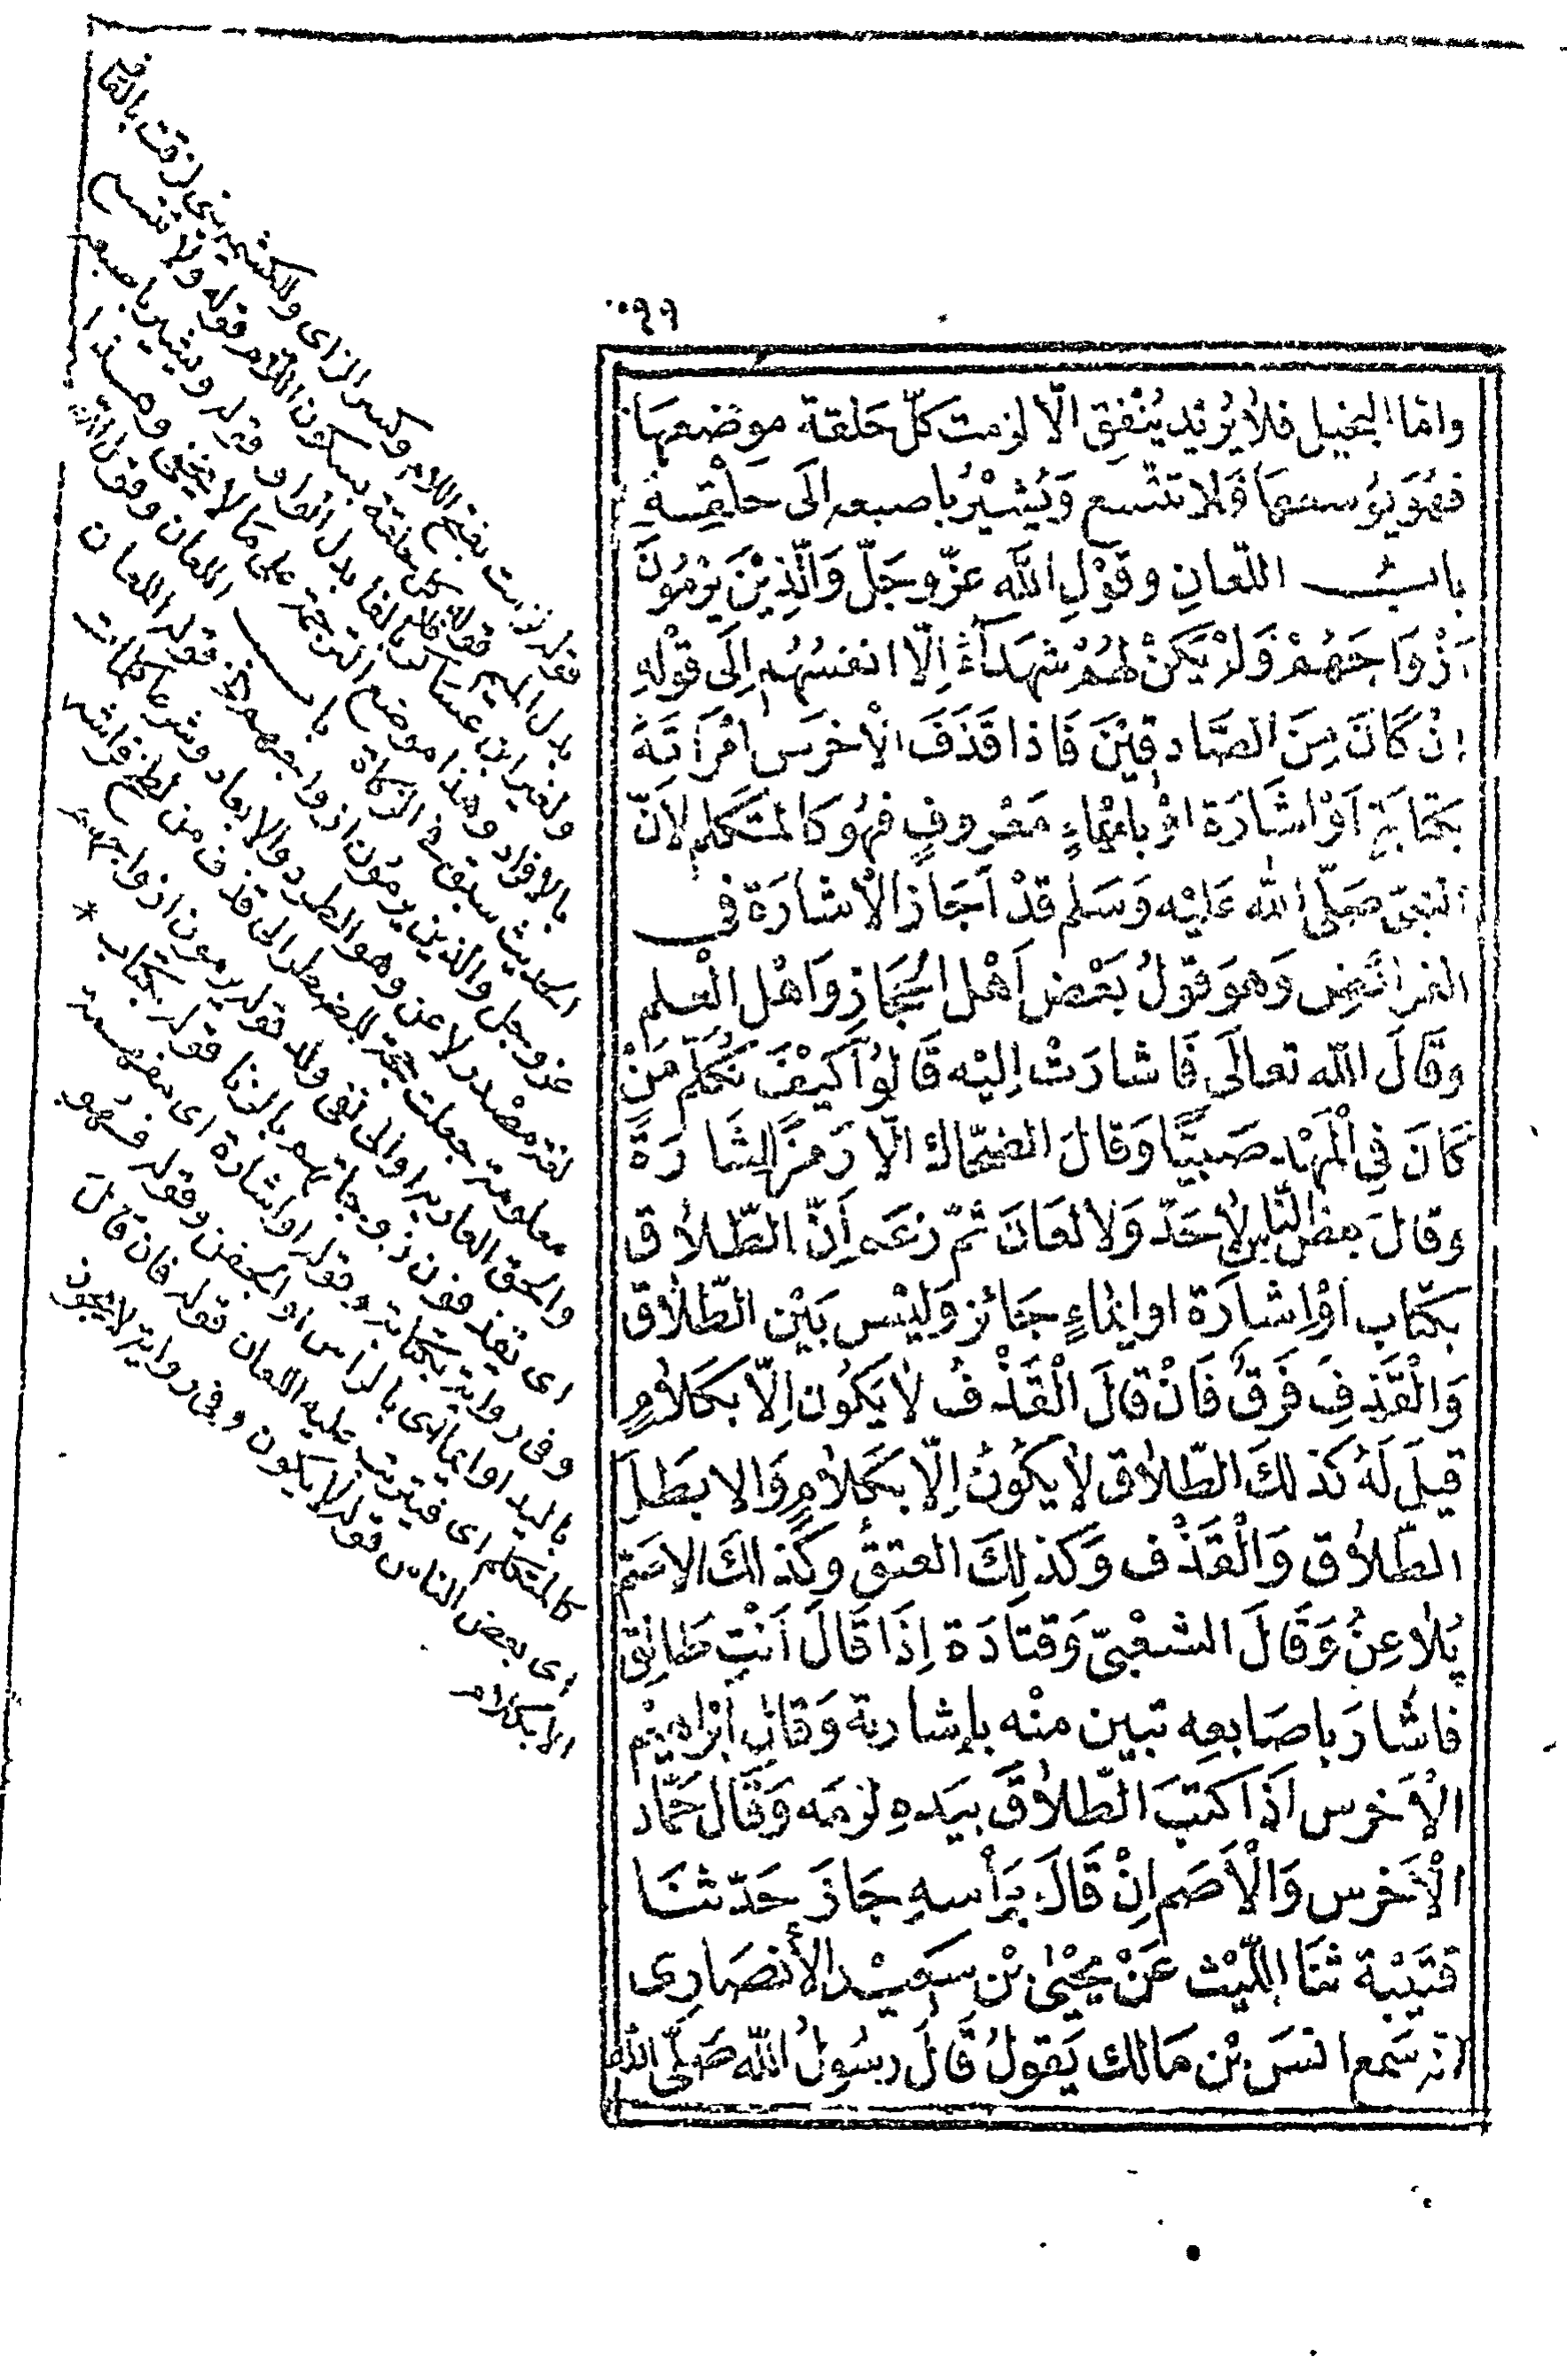 واما البخيل فلا يريد ينفق الّا لزمت كلّ حلقة موضعها
فهو يوسعها فلا تتّسع ويشير باصبعه الى حلقه
باب اللّعان وقول الله عزّ وجلّ والّذين يرمون
ازواجهم ولم يكن لهم شهدآء الّا انفسهم الى قوله
ان كان من الصّادقين فاذا قذف الاخرس امرأته
بكتابة او اشارة او بايماء معروف فهو كالمتكلم لانّ
النبىّ صلّى الله عليه وسلم قد اجاز الاشارة فى
الفرائض وهو قول بعض اهل الحجاز واهل العلم
وقال الله تعالى فاشارت اليه قالوا كيف نكلّم من
كان فى المهد صبيّا وقال الضحّاك الّا رمزا اشارة
وقال بعض النّاس لا حدّ ولا لعان ثمّ زعم انّ الطّلاق
بكتاب او اشارة او ايماء جائز وليس بين الطّلاق
والقذف فرق فان قال القذف لا يكون الّا بكلام
قيل له كذلك الطّلاق لا يكون الّا بكلام والا بطل
الطّلاق والقذف وكذلك العتق وكذلك الاصمّ
يلاعن وقال الشعبىّ وقتادة اذا قال انت طالق
فاشار باصابعه تبين منه بإشارته وقال ابراهيم
الأخرس اذا كتب الطّلاق بيده لزمه وقال حمّاد
الأخرس والأصم ان قال برأسه جاز حدّثنا
قتيبة ثنا اللّيث عن يحيى بن سعيد الأنصارى
انه سمع انس بن مالك يقول قال رسول الله صلّى الله
قوله لزمت بفتح اللام وكسر الزاى وللكشميهنى لزقت بالقاف
بدل الميم قوله كل حلقة بسكون اللام قوله ولا تتسع
ولغير ابن عساكر بالفاء بدل الواو قوله ويشير باصبعه
بالافراد وهذا موضع الترجمة على ما لا يخفى وهذا
الحديث سبق فى الزكاة باب اللعان وقول الله
عز وجل والذين يرمون ازواجهم الخ قوله اللعان
لغة مصدر لاعن وهو الطرد والابعاد وشرعا كلمات
معلومة جعلت حجة للمضطر الى قذف من لطخ فراشه
والحق العار به او الى نفى ولد قوله يرمون ازواجهم
اى يقذفون زوجاتهم بالزنا قوله بكتاب *
وفى رواية بكتابة وقوله او اشارة اى مفهمة
باليد او ايماء اى بالرأس او الجفن وقوله فهو
كالمتكلم اى فيترتب عليه اللعان قوله فان قال
اى بعض الناس قوله لا يكون وفى رواية لا يجوز
الا بكلام